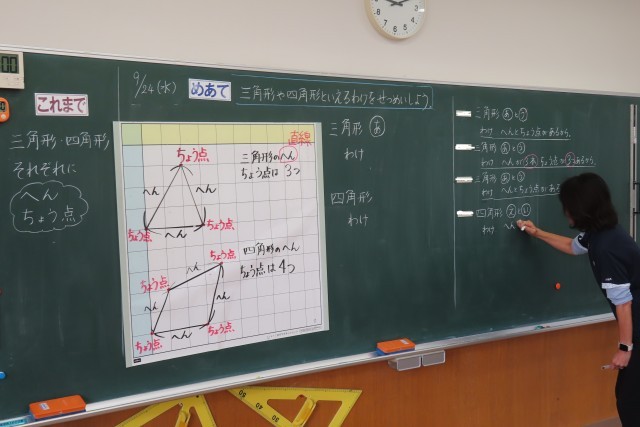 00
これまで
三角形・四角形
それぞれに
へん
ちょう点
9/24(水)
めあて
三角形や四角形といえるわけをせつめいしよう。
直線
ちょう点
へん
へん
ちょう点
へん
ちょう点
三角形のへん
ちょう点は3つ
四角形のへん
ちょう点は4つ
ちょう点
へん
ちょう点
へん
へん
ちょう点
へん
ちょう点
三角形 あ
わけ
四角形
わけ
三角形 あとう
わけ へんとちょう点があるから。
三角形 あとう
わけ へんが3本 ちょう点が3つあるから。
三角形 あとう
わけ へんとちょう点がある
四角形 えとい
わけ へん